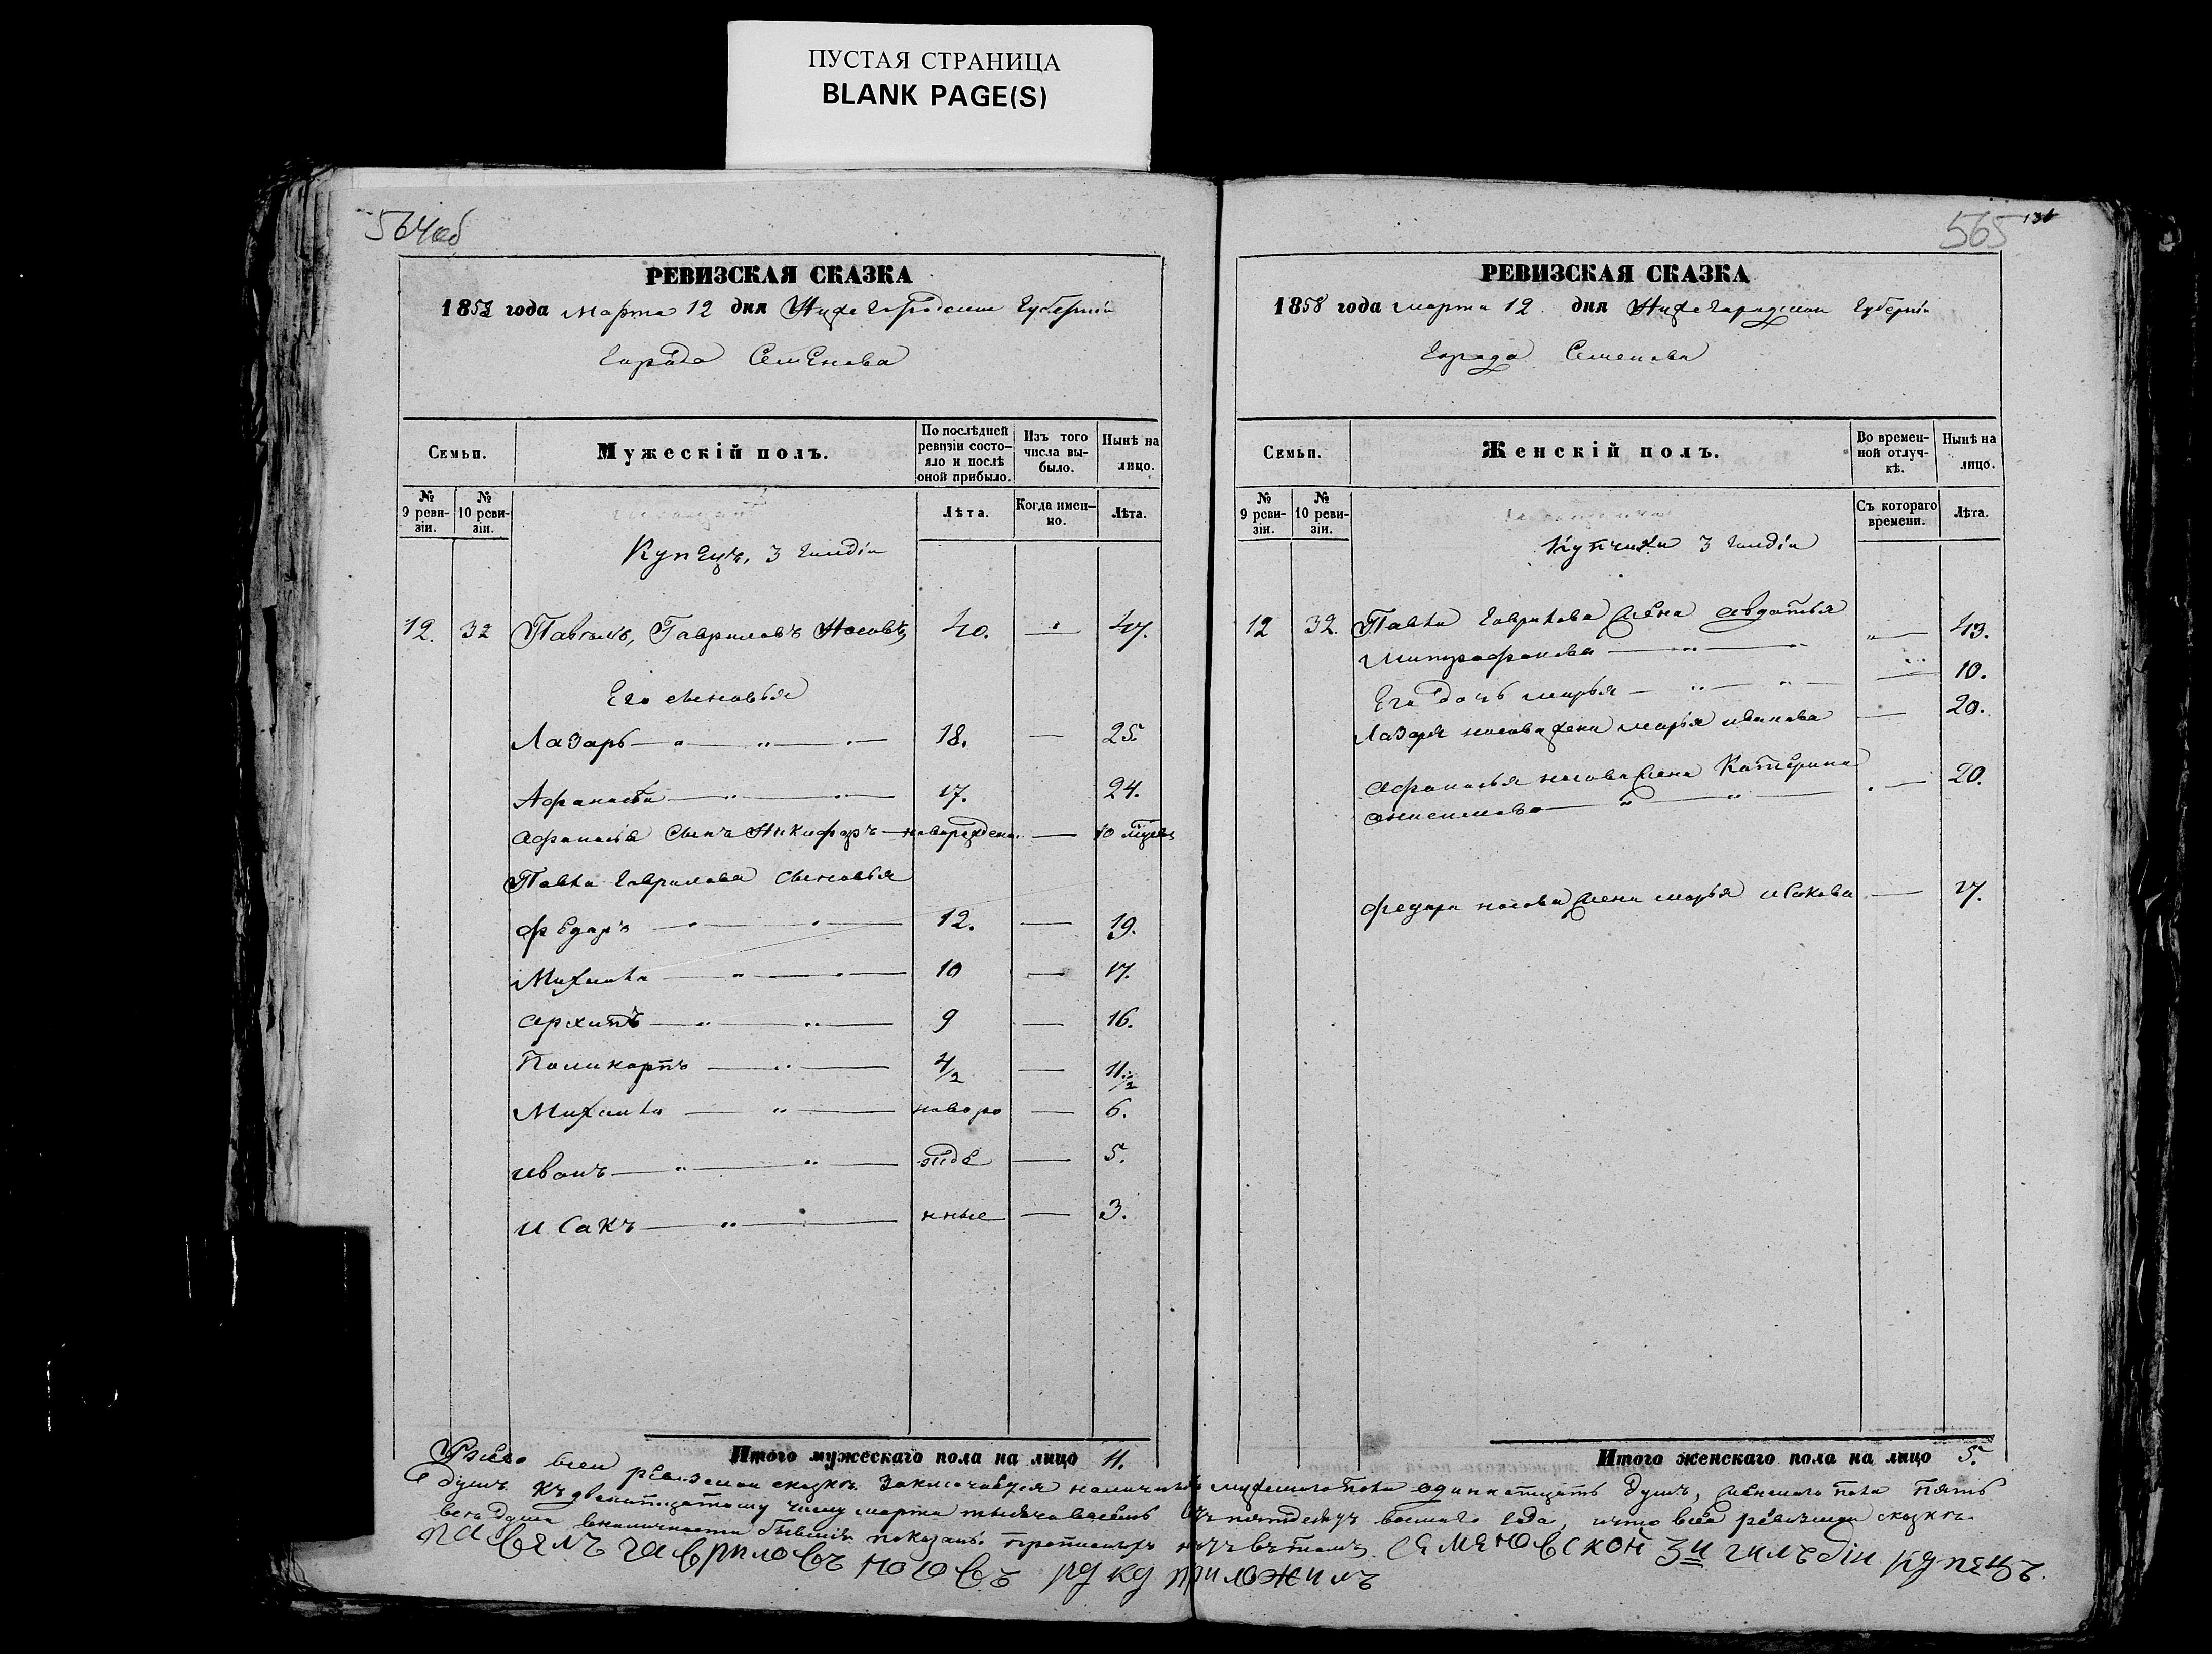 ПУСТАЯ СТРАНИЦА
BLANK PAGE(S)
564об
РЕВИЗСКАЯ СКАЗКА
1858 года марта 12 дня Нижегородской Губерніи
города Семенова
Семьи.
Мужескій полъ.
По послѣдней ревизіи состояло и послѣ оной прибыло.
Изъ того числа выбыло.
Нынѣ на лицо.
№ 9 ревизіи.
№ 10 ревизіи.
Лѣта.
Когда именно.
Лѣта.
Купецъ, 3 гилдіи
12. 32 Павелъ, Гавриловъ Носовъ 40. — 47.
Его сыновья
Лазарь — „ — „ — 18. — 25.
Афанасѣи — „ — „ — 17. 24.
Афанасья сынъ Никифоръ — новорожден. — 10 мѣсяц
Павла Гаврилова сыновья
Федаръ — „ — „ — 12. — 19.
Михаила — „ — „ — 10 — 17.
Архипъ — „ — „ — 9 — 16.
Поликарпъ — „ — 4/2 — 11 1/2
Михаила — „ — новоро — 6.
Иванъ — „ — „ — жде — 5.
Исакъ — „ — нные — 3.
Итого мужескаго пола на лицо 11.
565
131
РЕВИЗСКАЯ СКАЗКА
1858 года марта 12 дня Нижегородской Губерніи
города Семенова
Семьи.
Женскій полъ.
Во временной отлучкѣ.
Нынѣ на лицо.
№ 9 ревизіи.
№ 10 ревизіи.
Съ котораго времени.
Лѣта.
Купчихи 3 гилдіи
12 32. Павла Гаврилова жена Авдотья
Митрофанова — „ — „ — 43.
Его дочь Марья — „ — „ — 10.
Лазаря Носова жена Марья Иванова — 20.
Афанасья Носова жена Катерина
Анисимова — „ — „ — 20.
Федара Носова жена Марья Исакова — 17.
Итого женскаго пола на лицо 5.
Всего всей ревизской сказкѣ заключающея наличныхъ мужескаго пола одинатцать душъ, женскаго пола пять
душъ къ двенатцатому числу марта тысяча восемь сотъ пятдесятъ восмаго года, и что вся ревизская сказка
вся душа вналичности бывшія показаны прописныхъ нетъ вътомъ Семеновской 3й гилъдіи купецъ
Павелъ Гавриловъ Носовъ руку приложилъ